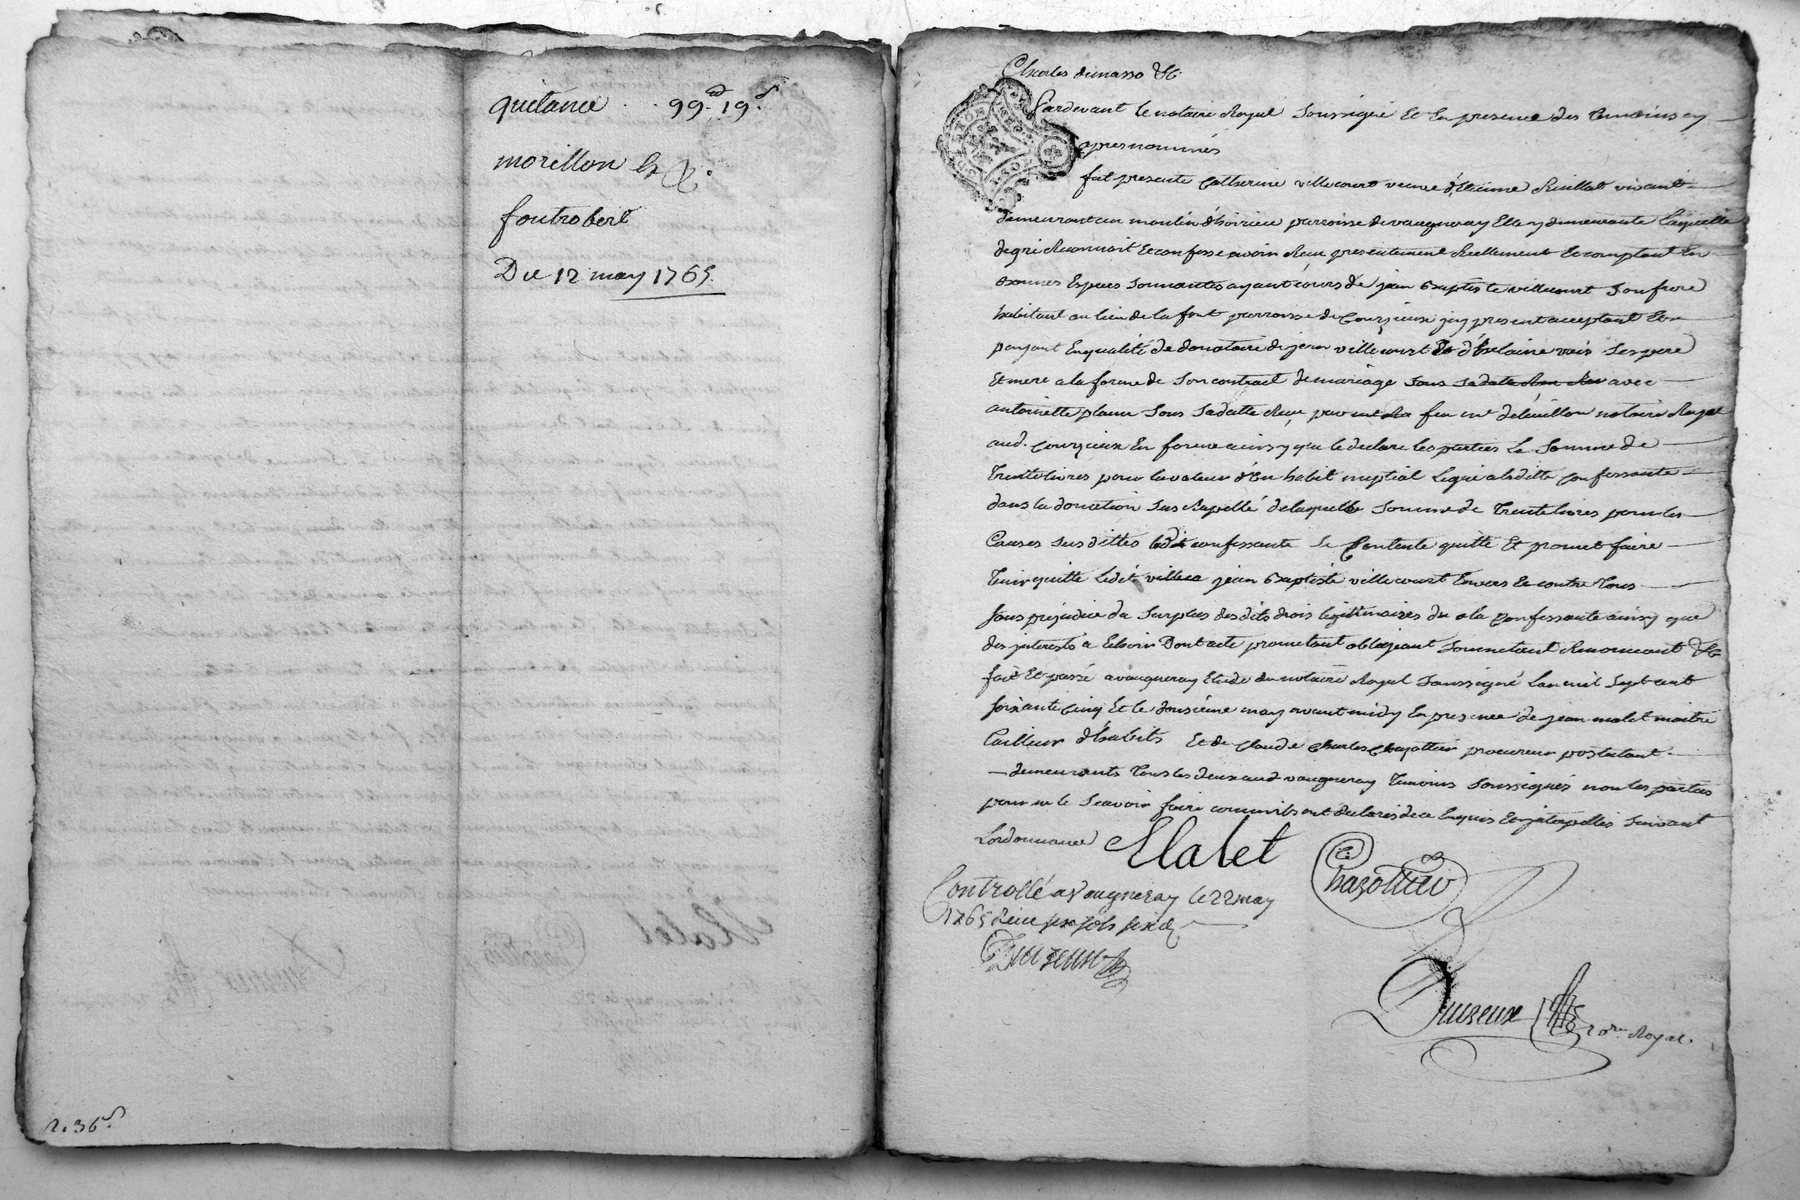 quitance . . 99.# 19.s
morillon &
fontrobert
Du 12 may 1765.
R. 36s
Charles demasso &c
Pardevant le notaire Royal soussigné Et En presence des temoins cy
apres nommés
fut presente Catherine villecourt veuve d'Etienne Ruillat vivant
demeurant au moulin d'hoirieu parroisse de vaugneray Elle y demeurante Laquelle
de gré Reconnoit Et confesse avoir Reçu presentement Réellement Et comptant En
bonnes Especes sonnantes ayant cours de jean Baptiste villecourt son frere
habitant au lieu de la font parroisse de Courzieux icy present acceptant Et
payant En qualité de donataire de jean villecourt Et d'helaine ses pere
Et mere a la forme de son contract de mariage sous sa datte avec
antoinette sous sa datte Reçu par feu me notaire Royal
aud. Courzieux En forme ainsy que le declare les parties La Somme de
Trente livres pour la valeur d'En habit nuptial Legué a laditte confessante
dans la donation sus Rapellé de laquelle somme de Trente livres pour les
Causes susdittes confessante se Contente quitte Et promet faire
Tenir quitte Ledit villec jean Baptiste villecourt Envers Et contre Tous
sans prejudice du surplus desdits droits legitimaires du a la confessante ainsy que
des interests a Echoir Dont acte promettant obligeant soumettant Renonceant &c
fait Et passé a vaugneray Etude du notaire Royal soussigné L'an mil sept cent
soixante cinq Et le douzième may avant midy En presence de jean malet maitre
Tailleur d'habits Et de Claude Charles Chazottier procureur postulant
demeurants Tous les deux aud vaugneray Temoins soussignés non les parties
pour ne le scavoir faire comm'ils ont declarés de ce Enquis Et interpellés suivant
Lordonnance Malet
C. Chazottier
Controllé a Vaugneray le 22 may
1765 Reçu six sols six d.
Duizeux
Duizeux nore Royal.